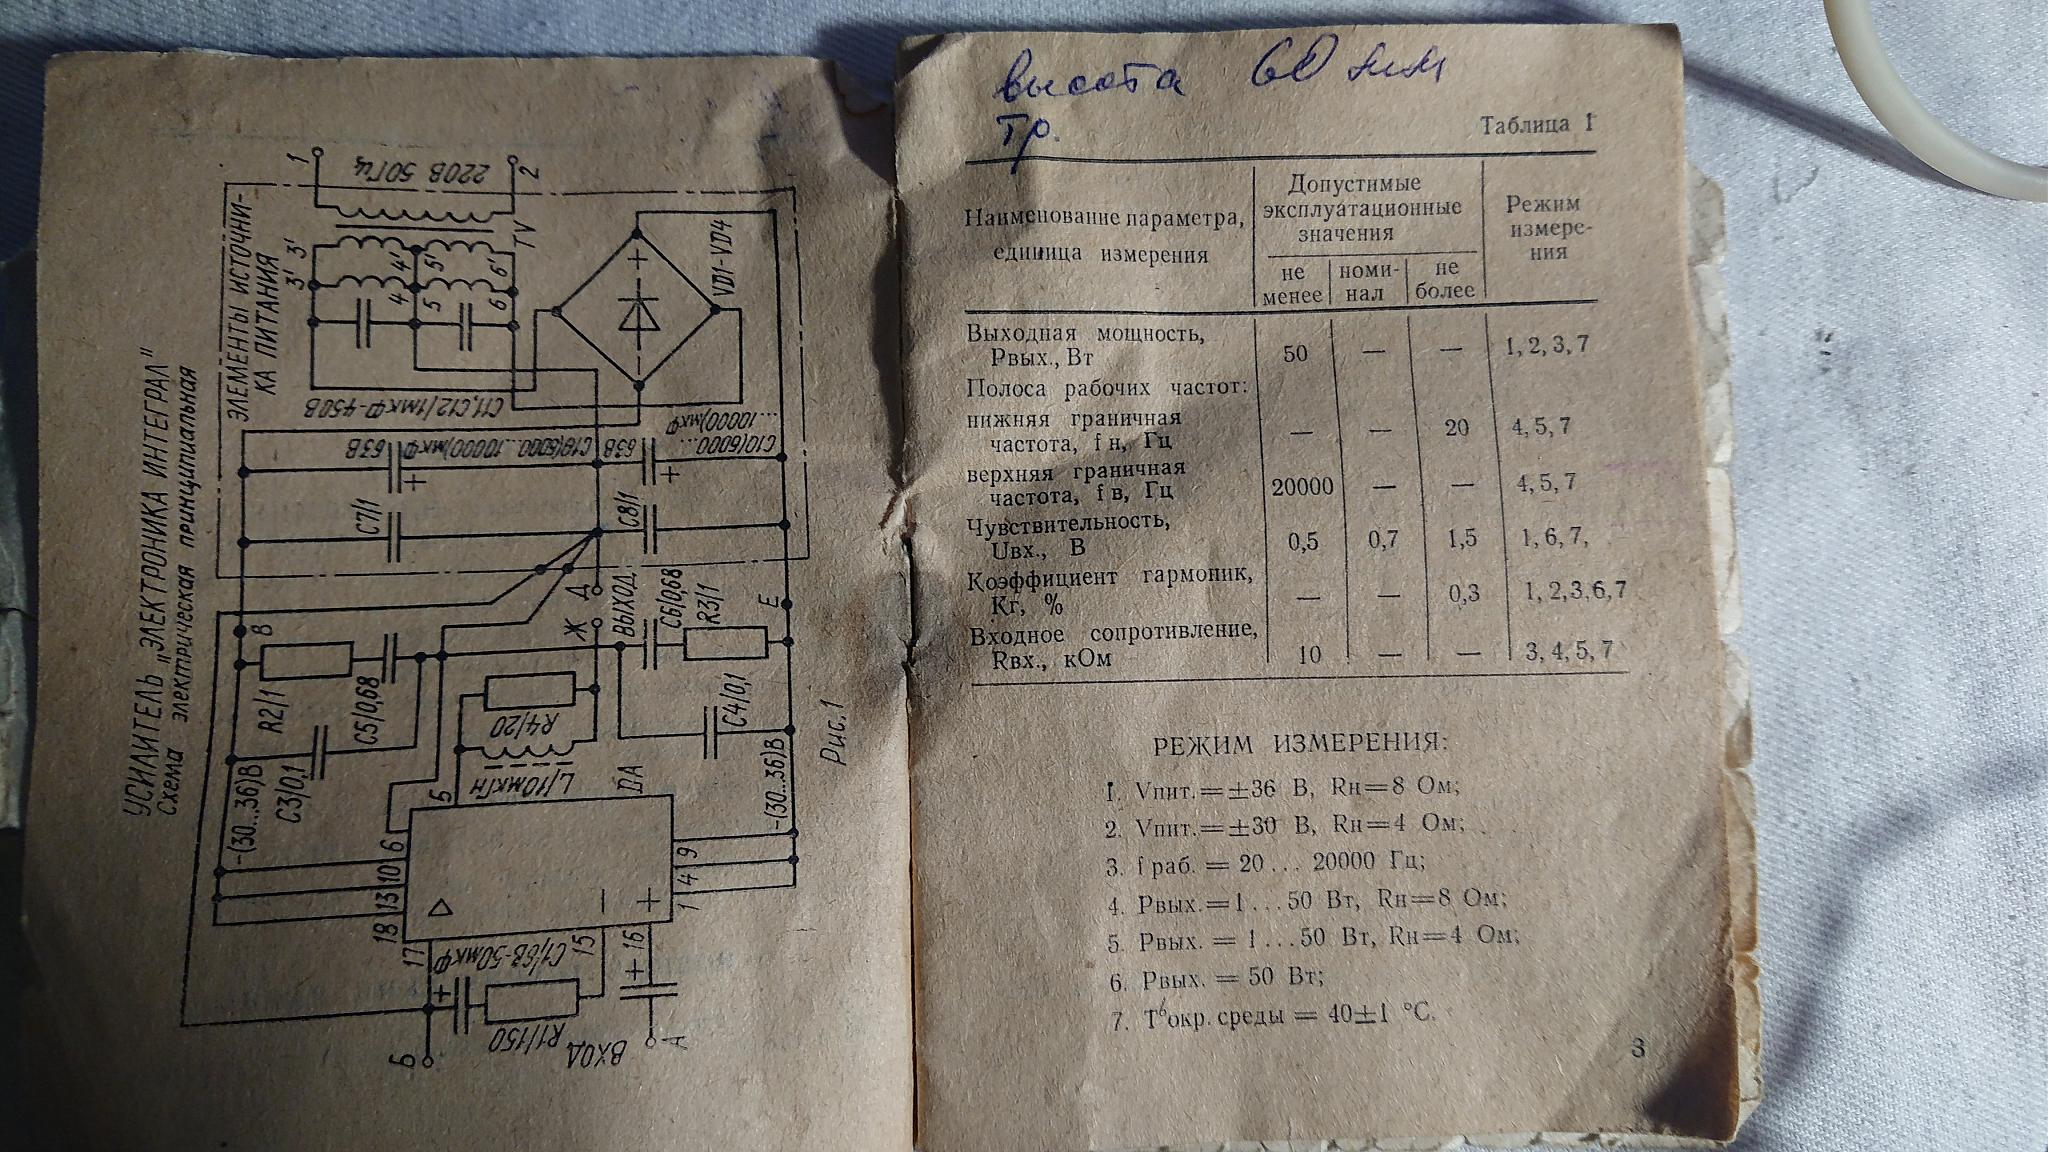 УСИЛИТЕЛЬ „ЭЛЕКТРОНИКА ИНТЕГРАЛ"
Схема электрическая принципиальная
ЭЛЕМЕНТЫ ИСТОЧНИ-
КА ПИТАНИЯ
1
220В 50Гц
2
3' 3'
4 4'
5 5'
6 6'
TV
VD1-VD4
С11,С12/1мкФ-450В
63В
С10(6000...10000)мкФ
63В
С10(6000...
...10000)мкФ
С7/1
С8/1
В
R2/1
С5/0,68
Д
Ж
ВЫХОД
С6/0,68
R3/1
Е
-(30...36)В
С3/0,1
R4/20
L/10мкГн
С4/0,1
-(30...36)В
5
DA
18 13 10 6
1 4 9
17
С1/6В-50мкФ
15
16
R1/150
Б
ВХОД
А
Рис.1
высота 60 мм
тр.
Таблица 1
Наименование параметра,
единица измерения
Допустимые
эксплуатационные
значения
Режим
измере-
ния
не
менее
номи-
нал
не
более
Выходная мощность,
Рвых., Вт 50 — — 1, 2, 3, 7
Полоса рабочих частот:
нижняя граничная
частота, fн, Гц — — 20 4, 5, 7
верхняя граничная
частота, fв, Гц 20000 — — 4, 5, 7
Чувствительность,
Uвх., В 0,5 0,7 1,5 1, 6, 7,
Коэффициент гармоник,
Кг, % — — 0,3 1, 2,3,6,7
Входное сопротивление,
Rвх., кОм 10 — — 3, 4, 5, 7
РЕЖИМ ИЗМЕРЕНИЯ:
1. Vпит.=±36 В, Rн=8 Ом;
2. Vпит.=±30 В, Rн=4 Ом;
3. f раб. = 20 ... 20000 Гц;
4. Рвых.=1...50 Вт, Rн=8 Ом;
5. Рвых. = 1...50 Вт, Rн=4 Ом;
6. Рвых. = 50 Вт;
7. Т окр. среды = 40±1 °С.
3